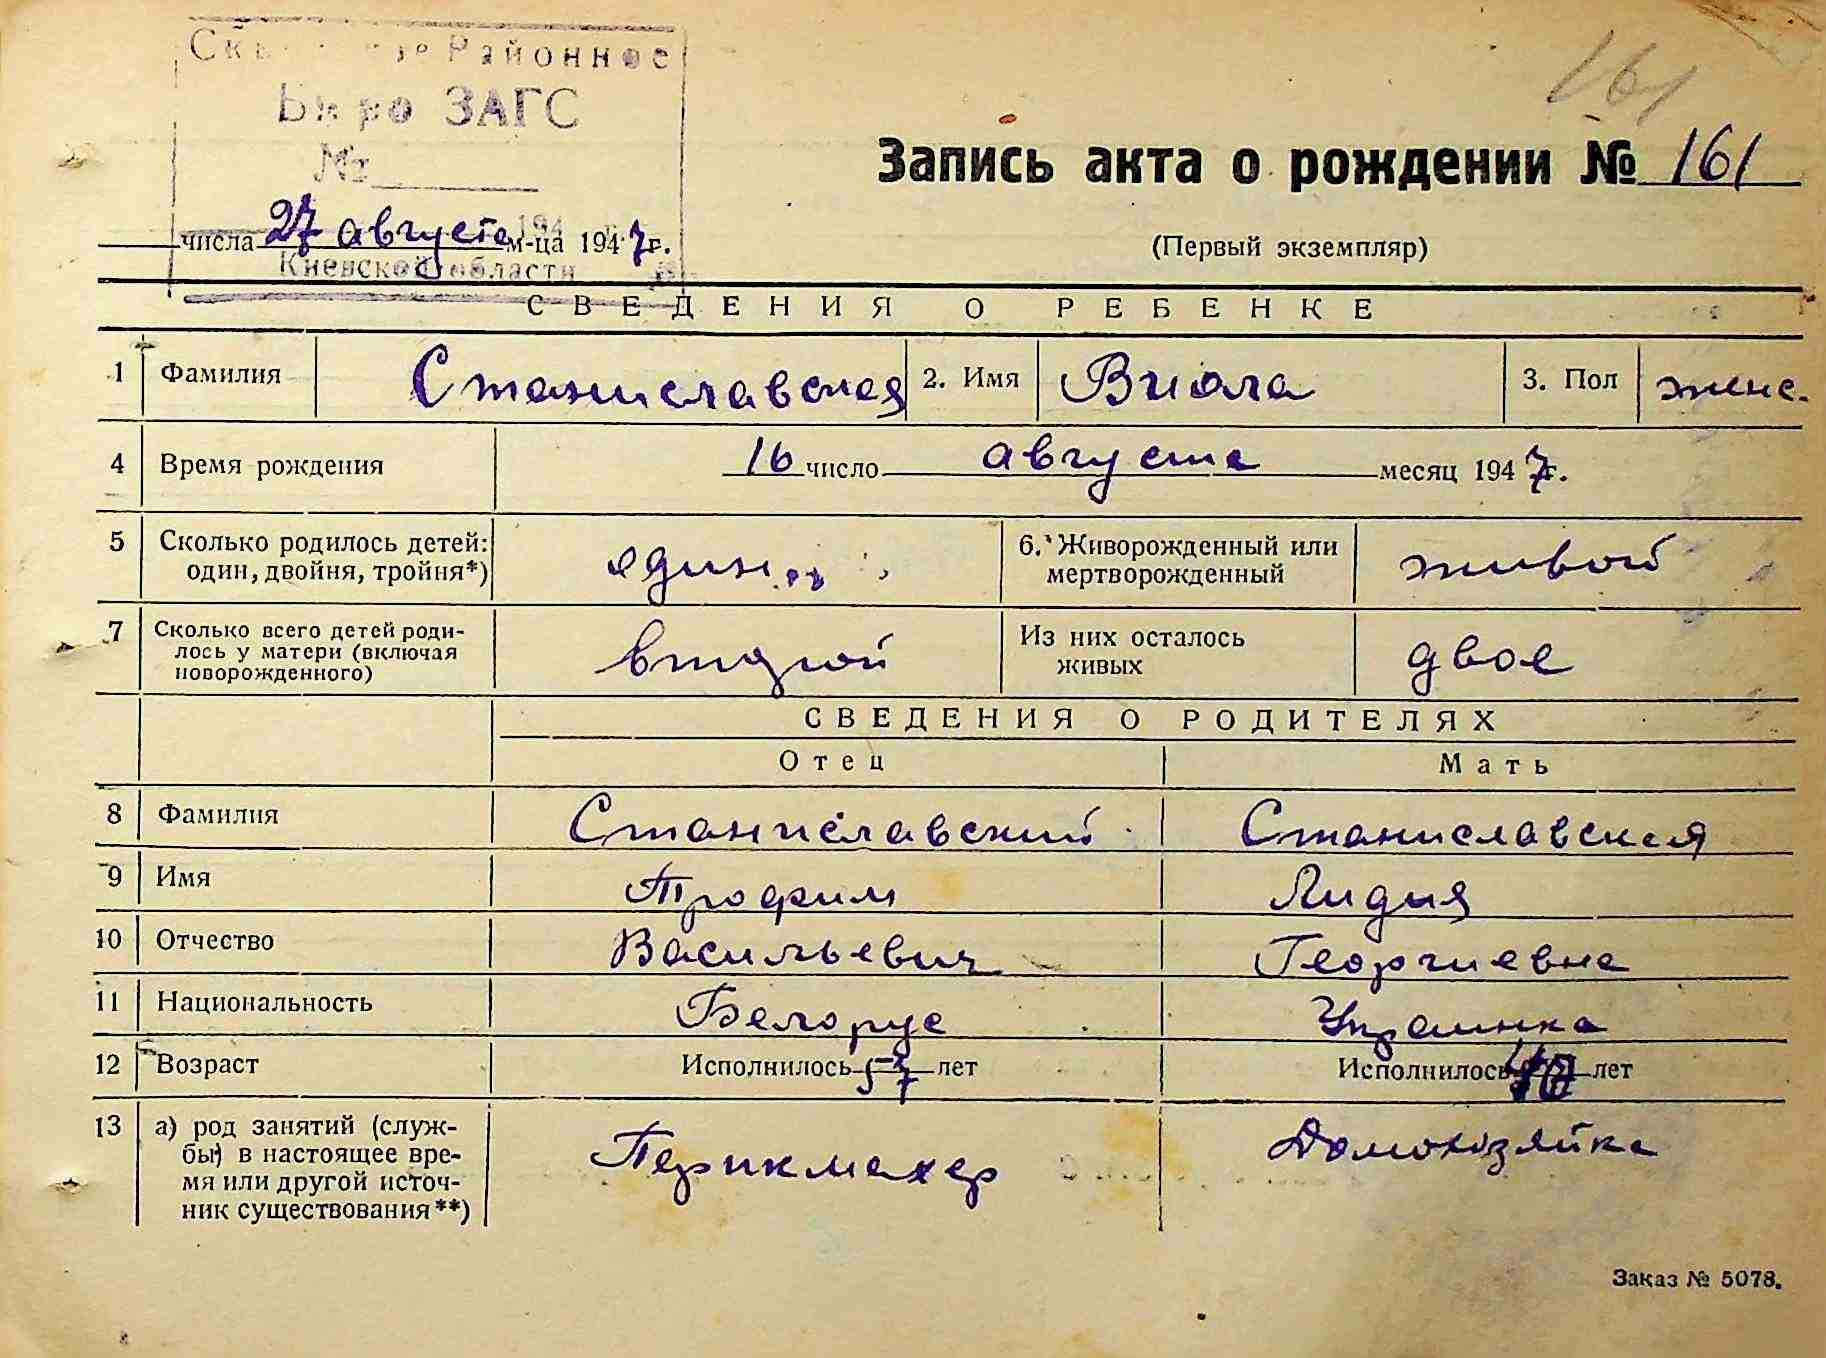 Районное
Бюро ЗАГС
№
161
Запись акта о рождении № 161
числа 27 августа м-ца 1947 г.
(Первый экземпляр)
Киевской области
СВЕДЕНИЯ О РЕБЕНКЕ
1 Фамилия Станиславская 2. Имя Виола 3. Пол женс.
4 Время рождения 16 число августа месяц 1947 г.
5 Сколько родилось детей: 6. Живорожденный или
один, двойня, тройня*) один мертворожденный живой
7 Сколько всего детей роди- Из них осталось
лось у матери (включая второй живых двое
новорожденного)
СВЕДЕНИЯ О РОДИТЕЛЯХ
Отец Мать
8 Фамилия Станиславский Станиславская
9 Имя Трофим Лидия
10 Отчество Васильевич Георгиевна
11 Национальность Белорус Украинка
12 Возраст Исполнилось 57 лет Исполнилось 40 лет
13 а) род занятий (служ-
бы) в настоящее вре- Перикмахер Домохозяйка
мя или другой источ-
ник существования**)
Заказ № 5078.